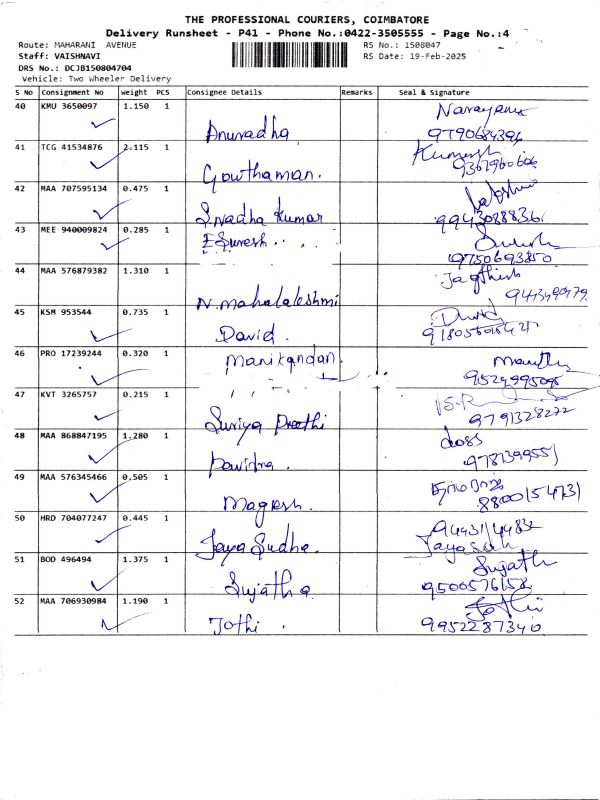 THE PROFESSIONAL COURIERS, COIMBATORE
Delivery Runsheet - P41 - Phone No.:0422-3505555 - Page No.:4
Route: MAHARANI AVENUE
RS No.: 1508047
Staff: VAISHNAVI
RS Date: 19-Feb-2025
DRS No.: DCJB150804704
Vehicle: Two Wheeler Delivery
S No Consignment No Weight PCS Consignee Details Remarks Seal & Signature
40 KMU 3650097 1.150 1 Anuradha
41 TCG 41534876 2.115 1 Gowthaman.
42 MAA 707595134 0.475 1 Kumar
43 MEE 940009824 0.285 1 E Suresh
9750693850
44 MAA 576879382 1.310 1 N. mahalakshmi
45 KSM 953544 0.735 1 David. David
46 PRO 17239244 0.320 1 Manikandan
47 KVT 3265757 0.215 1 Suriya Preethi
9791328272
48 MAA 868847195 1.280 1 Pavithra.
49 MAA 576345466 0.505 1 Magesh.
50 HRD 704077247 0.445 1 Jaya Sudha.
51 BOD 496494 1.375 1 Sujatha Sujath
9500576158
52 MAA 706930984 1.190 1 Jothi. Jothi
9952287340